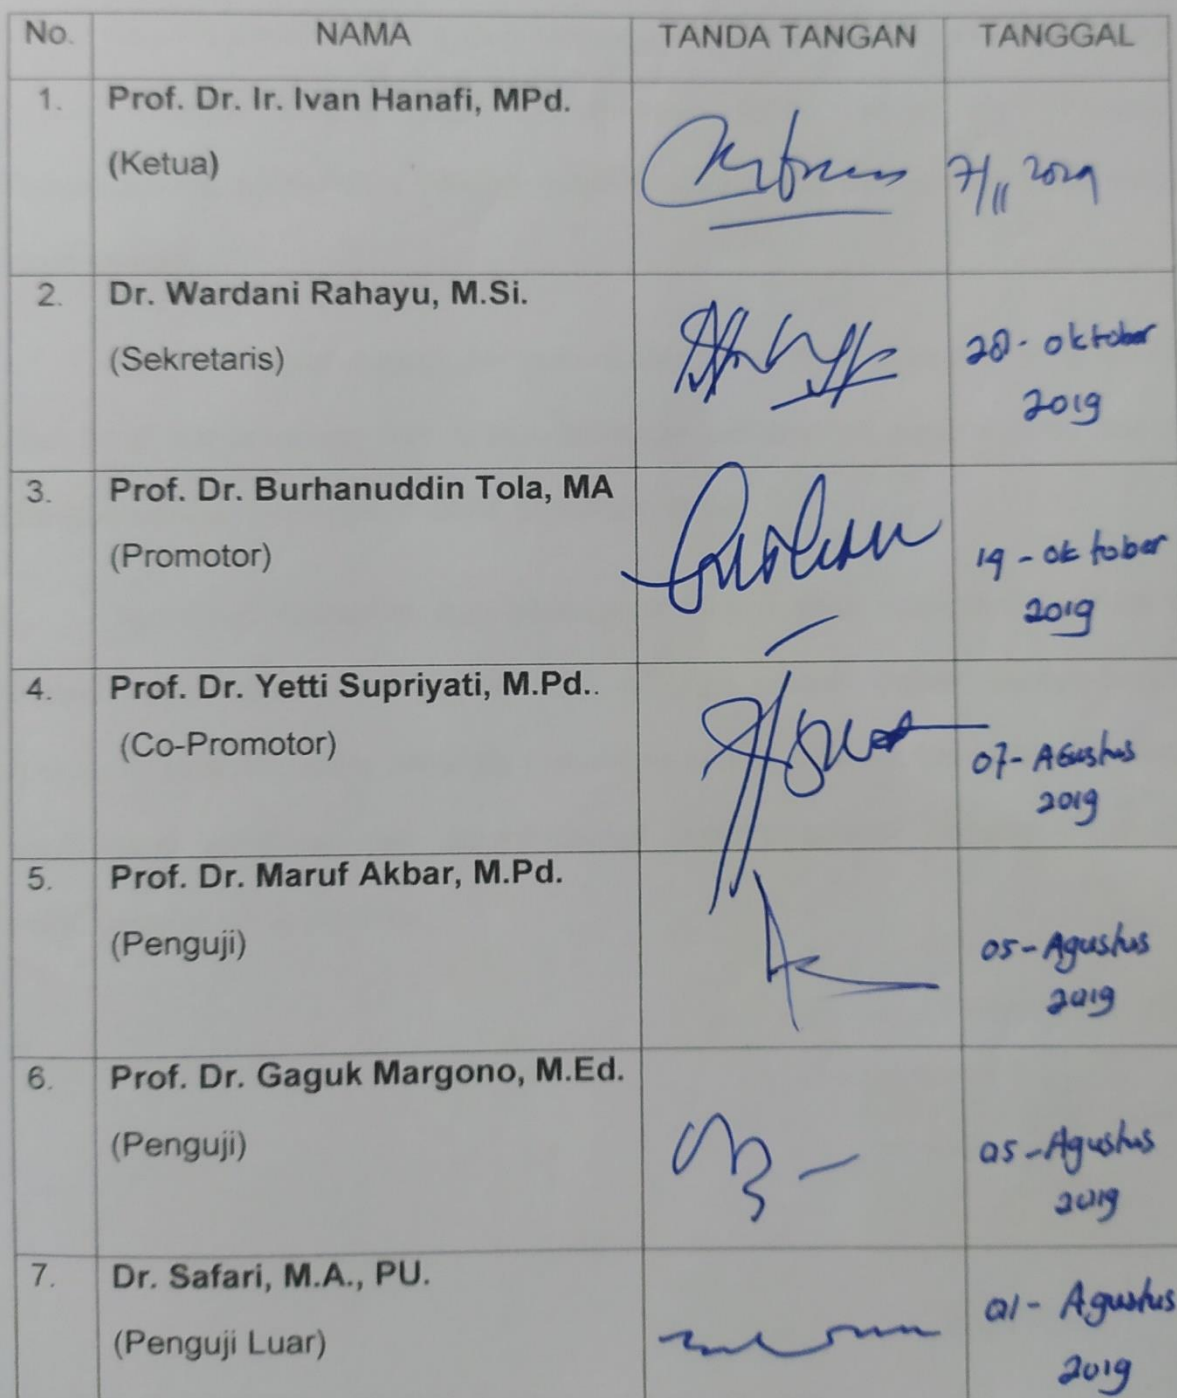 No. NAMA TANDA TANGAN TANGGAL
1. Prof. Dr. Ir. Ivan Hanafi, MPd.
(Ketua)
7/11 2019
2. Dr. Wardani Rahayu, M.Si.
(Sekretaris)
28 - oktober
2019
3. Prof. Dr. Burhanuddin Tola, MA
(Promotor)
19 - oktober
2019
4. Prof. Dr. Yetti Supriyati, M.Pd..
(Co-Promotor)
07 - Agustus
2019
5. Prof. Dr. Maruf Akbar, M.Pd.
(Penguji)
05 - Agustus
2019
6. Prof. Dr. Gaguk Margono, M.Ed.
(Penguji)
05 - Agustus
2019
7. Dr. Safari, M.A., PU.
(Penguji Luar)
01 - Agustus
2019